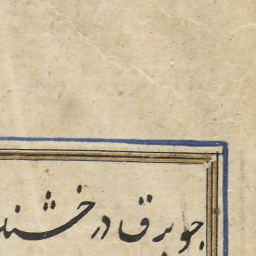 چو برق درخشند